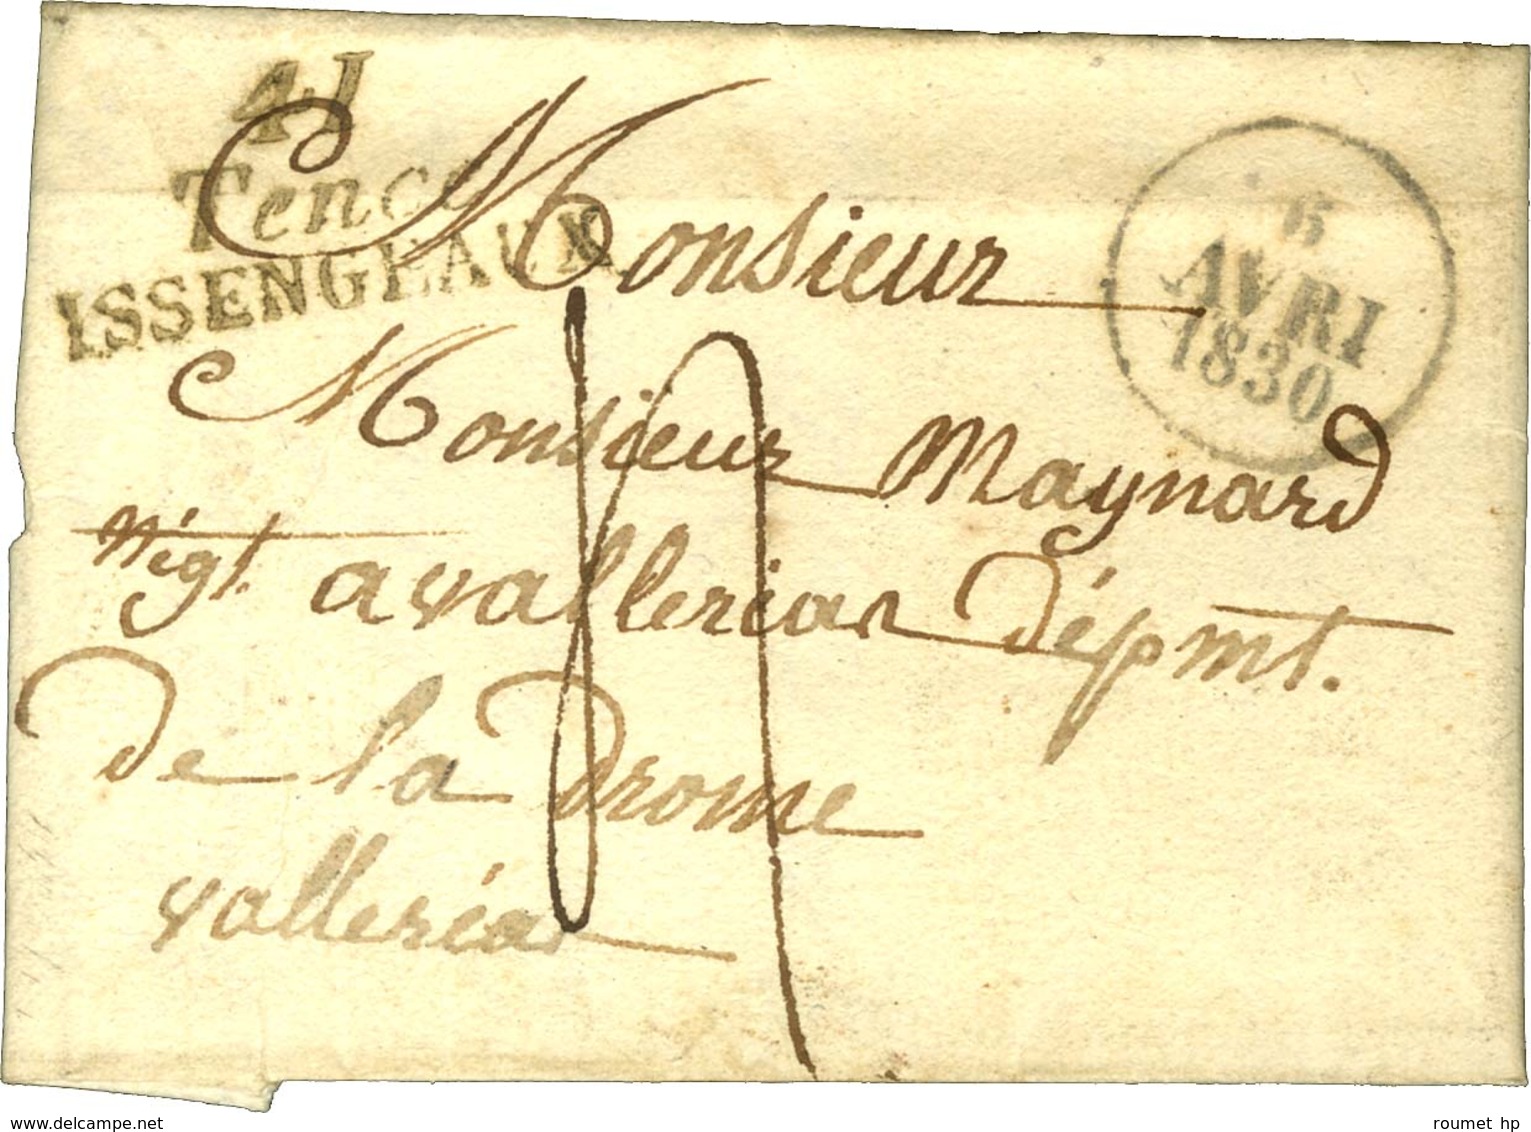 41
Tence
ISSENGEAUX
6
AVRI
1830
Monsieur
Monsieur Maynard
Négt. a vallerias dépmt.
De la Drome
valleria
roumet hp